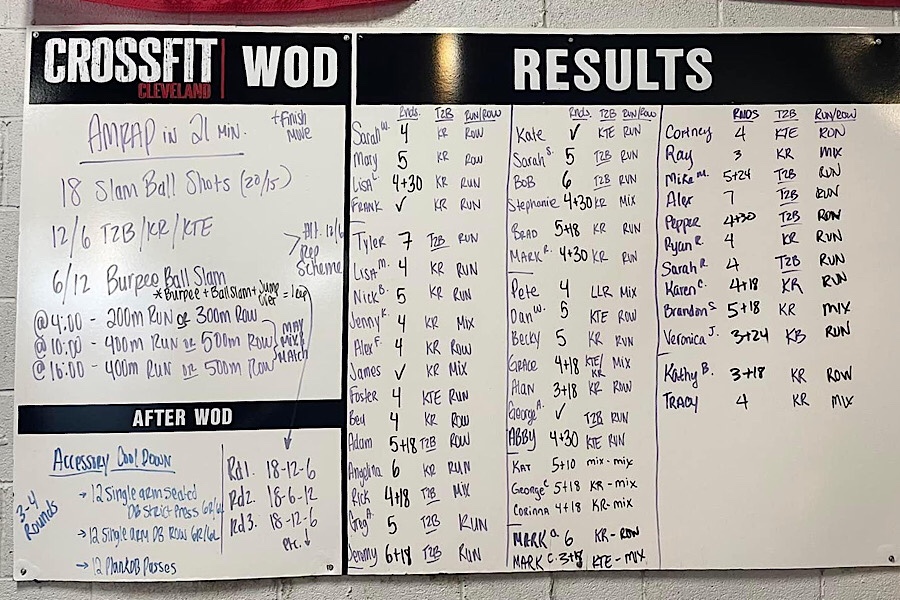 CROSSFIT
CLEVELAND
WOD
AMRAP in 21 min.
+ Finish Move
18 Slam Ball Shots (20/15)
12/6 T2B/KR/KTE
Alt. 12/6 Rep Scheme
6/12 Burpee Ball Slam
*Burpee + Ball Slam + Jump over = 1 rep
@ 4:00 - 200m Run or 300m Row
@ 10:00 - 400m Run or 500m Row
@ 16:00 - 400m Run or 500m Row
may Mix & Match
AFTER WOD
Accessory Cool Down
3-4 Rounds
→ 12 Single arm Seated DB Strict Press 6R/6L
→ 12 Single arm DB Row 6R/6L
→ 12 Plank DB Passes
Rd1. 18-12-6
Rd2. 18-6-12
Rd3. 18-12-6
Etc. ↓
RESULTS
Rnds. T2B RUN/ROW
Sarah W. 4 KR ROW
Mary 5 KR ROW
Lisa L. 4+30 KR RUN
FRANK ✓ KR RUN
Tyler 7 T2B RUN
Lisa M. 4 KR RUN
Nick B. 5 KR RUN
Jenny K. 4 KR Mix
Alex F. 4 KR ROW
James ✓ KR MIX
Foster 4 KTE RUN
Ben 4 KR ROW
Adam 5+18 T2B ROW
Angelina 6 KR RUN
Rick 4+18 T2B MIX
Greg A. 5 T2B RUN
Jenny 6+18 T2B RUN
Rnds. T2B RUN/ROW
Kate ✓ KTE RUN
Sarah S. 5 T2B RUN
BOB 6 T2B RUN
Stephanie 4+30 KR Mix
BRAD 5+18 KR RUN
MARK R. 4+30 KR
Pete 4 LLR Mix
Dan W. 5 KTE ROW
Becky 5 KR RUN
GRACE 4+18 KTE/KR Mix
Alan 3+18 KR ROW
George A. ✓ T2B RUN
ABBY 4+30 KTE RUN
KAT 5+10 mix-mix
George C. 5+18 KR-mix
Corinna 4+18 KR-mix
MARK a. 6 KR-ROW
MARK C. 3+18 KTE-MIX
RNDS T2B RUN/ROW
Cortney 4 KTE RUN
Ray 3 KR MIX
Mike M. 5+24 T2B RUN
Alex 7 T2B RUN
Pepper 4+30 T2B ROW
Ryan R. 4 KR RUN
Sarah R. 4 T2B RUN
Karen C. 4+18 KR RUN
Brandon S. 5+18 KR MIX
Veronica J. 3+24 KB RUN
Kathy B. 3+18 KR ROW
TRACY 4 KR MIX